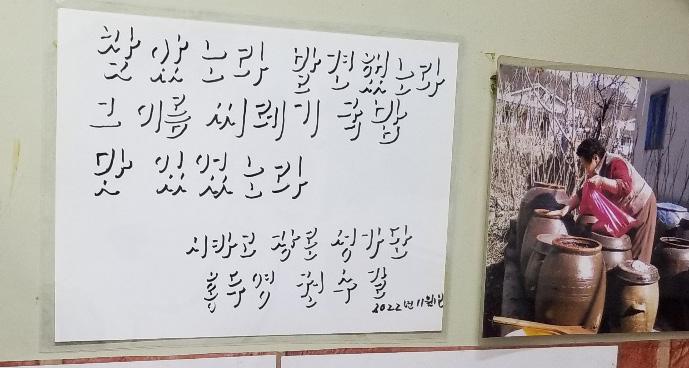 찾았노라 발견했노라
그 이름 씨레기 국밥
맛 있었노라
시카고 장로 성가단
홍두영 권수길
2022년 11월1일